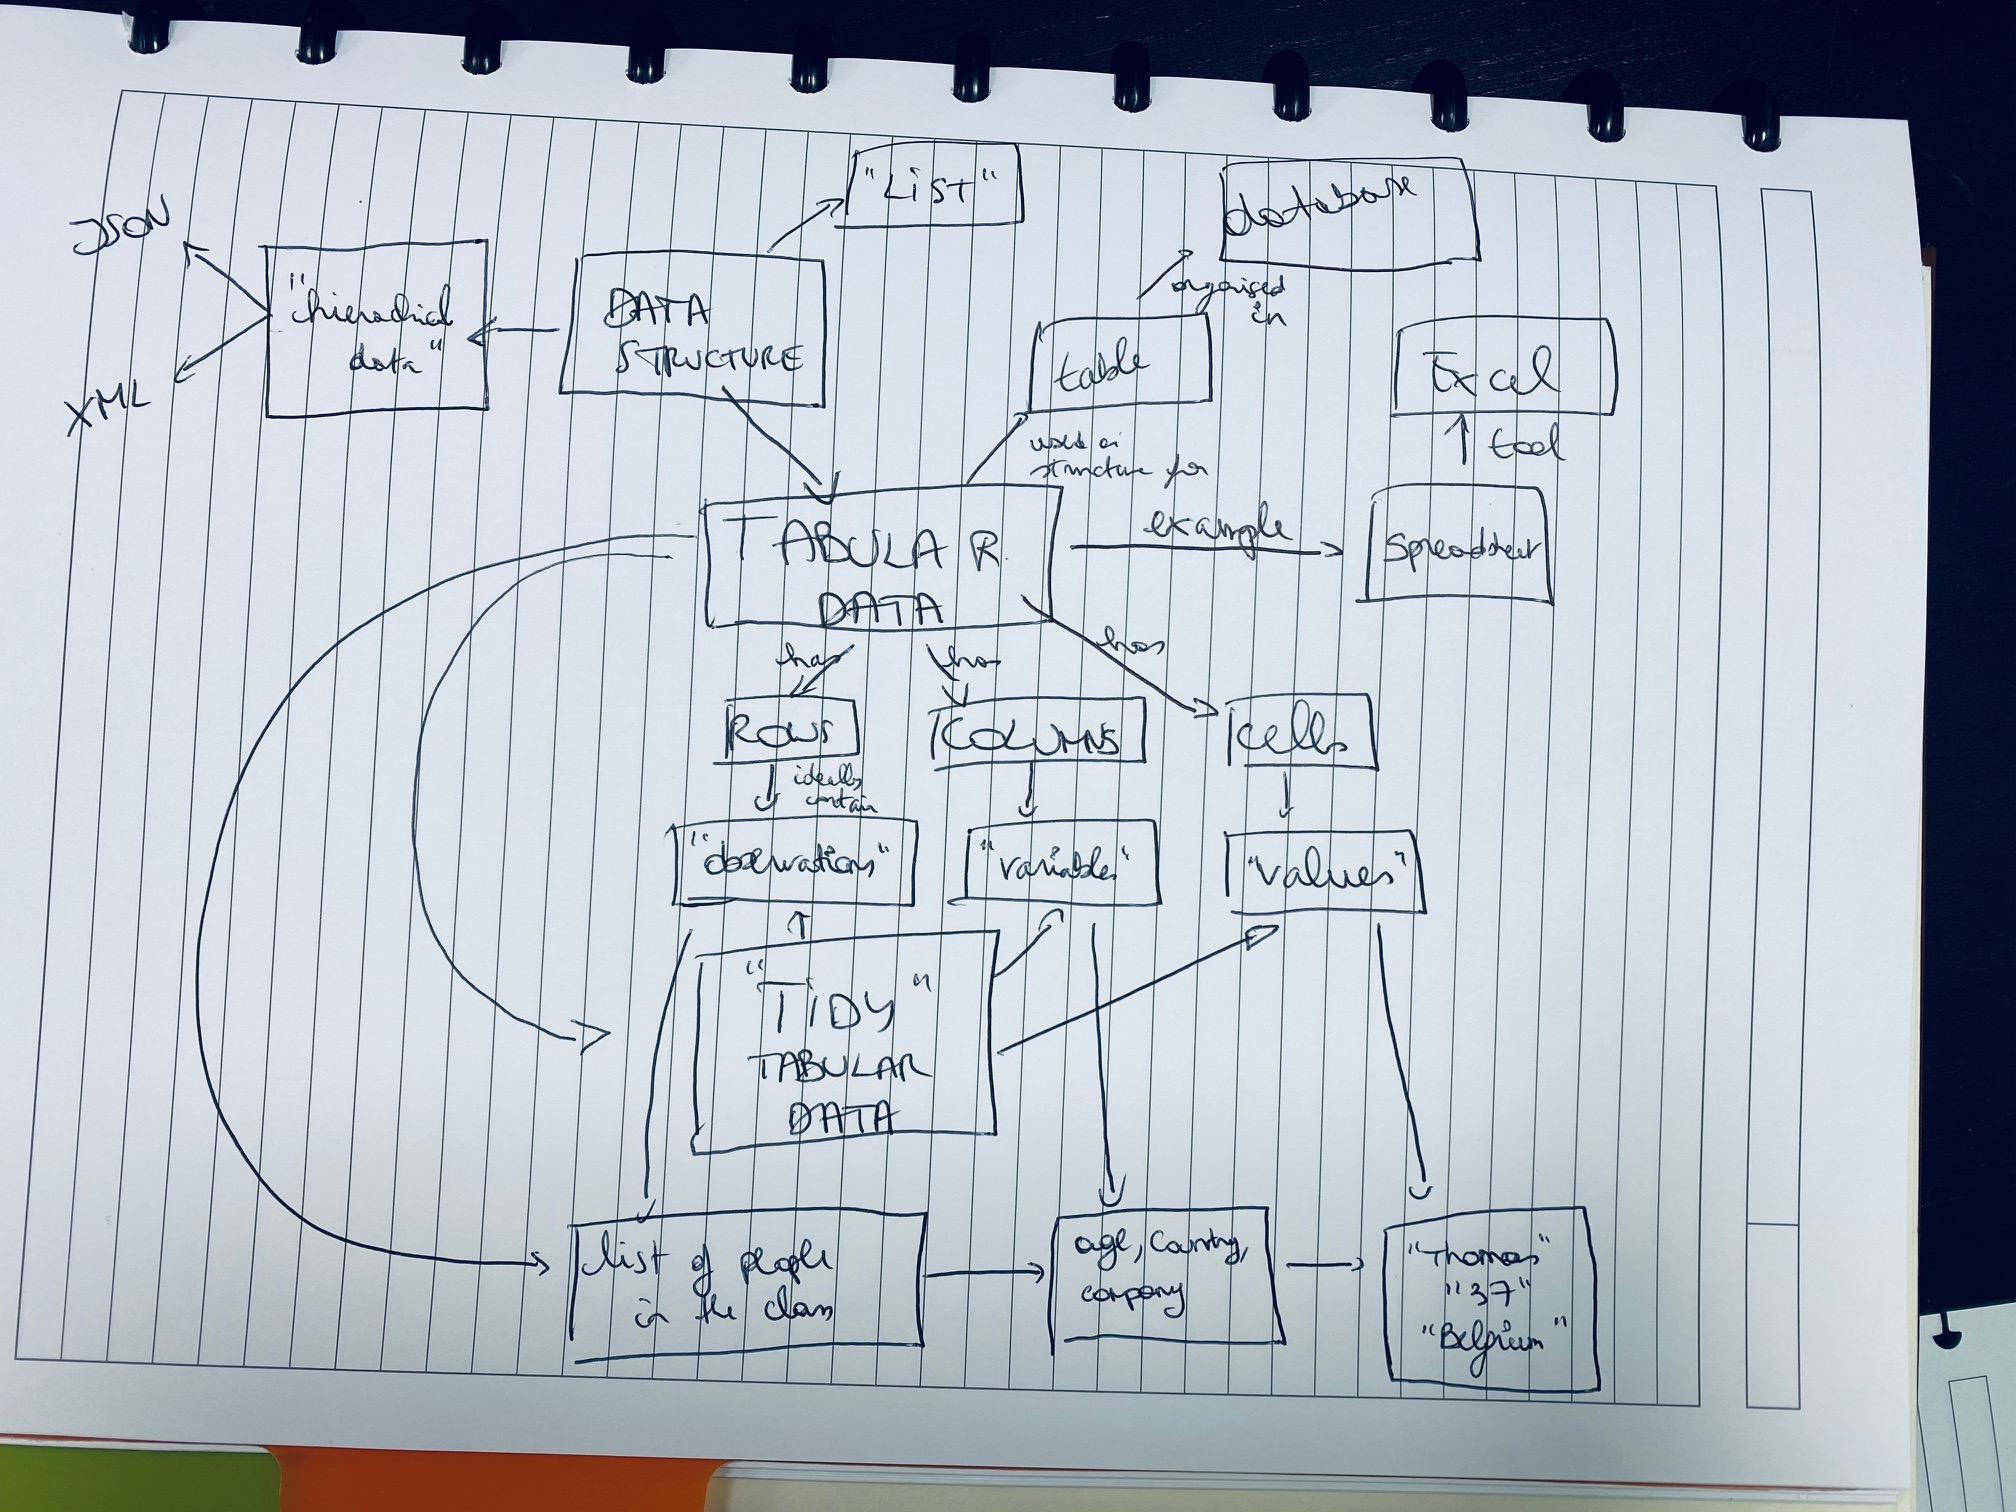 "LIST"
database
JSON
"hierachical
data"
DATA
STRUCTURE
organised
in
table
Excel
XML
used as
structure for
tool
TABULAR
DATA
example
Spreadsheet
has
has
has
ROWS
COLUMNS
cells
ideally
contain
"observations"
"variables"
"values"
"TIDY"
TABULAR
DATA
list of people
in the class
age, Country,
company
"Thomas"
"37"
"Belgium"